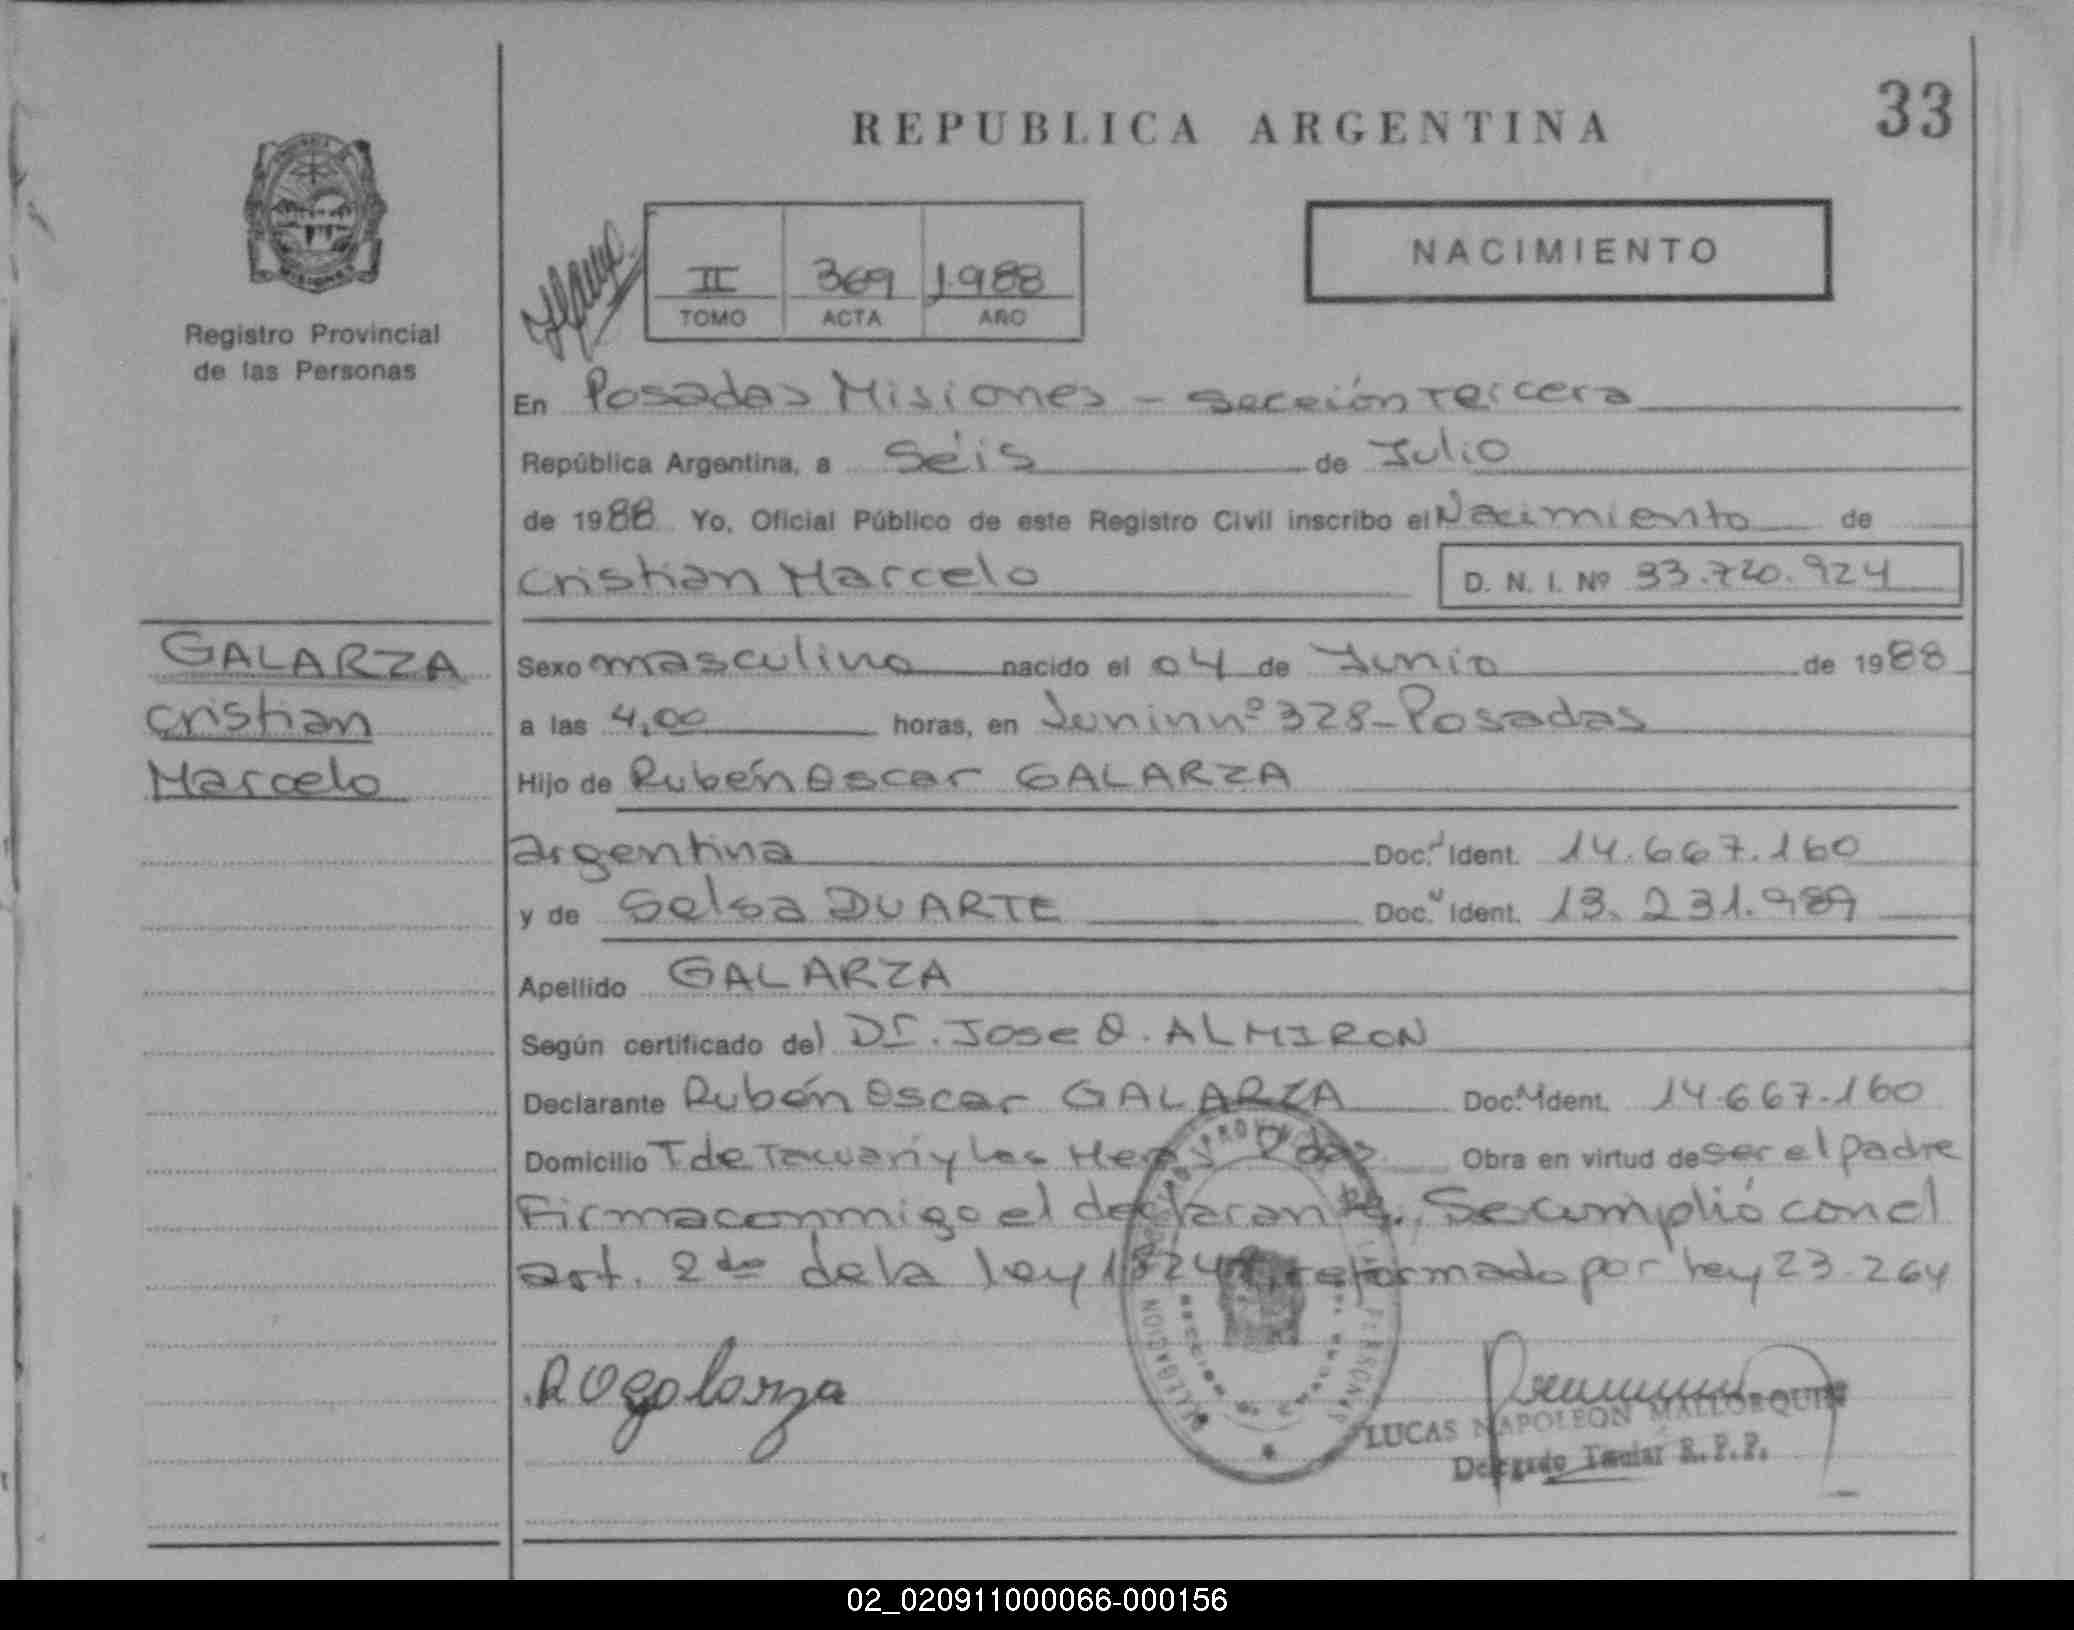 33
REPUBLICA ARGENTINA
NACIMIENTO
II 369 1.988
TOMO ACTA AÑO
Registro Provincial
de las Personas
En Posadas Misiones - sección Tercera
República Argentina, a Séis de Julio
de 1988 Yo, Oficial Público de este Registro Civil inscribo el Nacimiento de
Cristian Marcelo D. N. I. Nº 33.720.924
GALARZA
Cristian
Marcelo
Sexo masculino nacido el 04 de Junio de 1988
a las 4,00 horas, en Junin nº 328-Posadas
Hijo de Rubén Oscar GALARZA
argentina Doc. Ident. 14.667.160
y de Selsa DUARTE Doc. Ident. 13.231.989
Apellido GALARZA
Según certificado del Dr. Jose O. ALMIRON
Declarante Rubén Oscar GALARZA Doc. Ident. 14.667.160
Domicilio T de Tacuarí y Las Heras Pdas Obra en virtud de ser el padre
Firma conmigo el declarante. Se cumplió con el
art. 2do de la ley 18248 reformado por ley 23.264
ROGalarza
LUCAS NAPOLEON MALLORQUIN
Delegado Titular R.P.P.
02_020911000066-000156